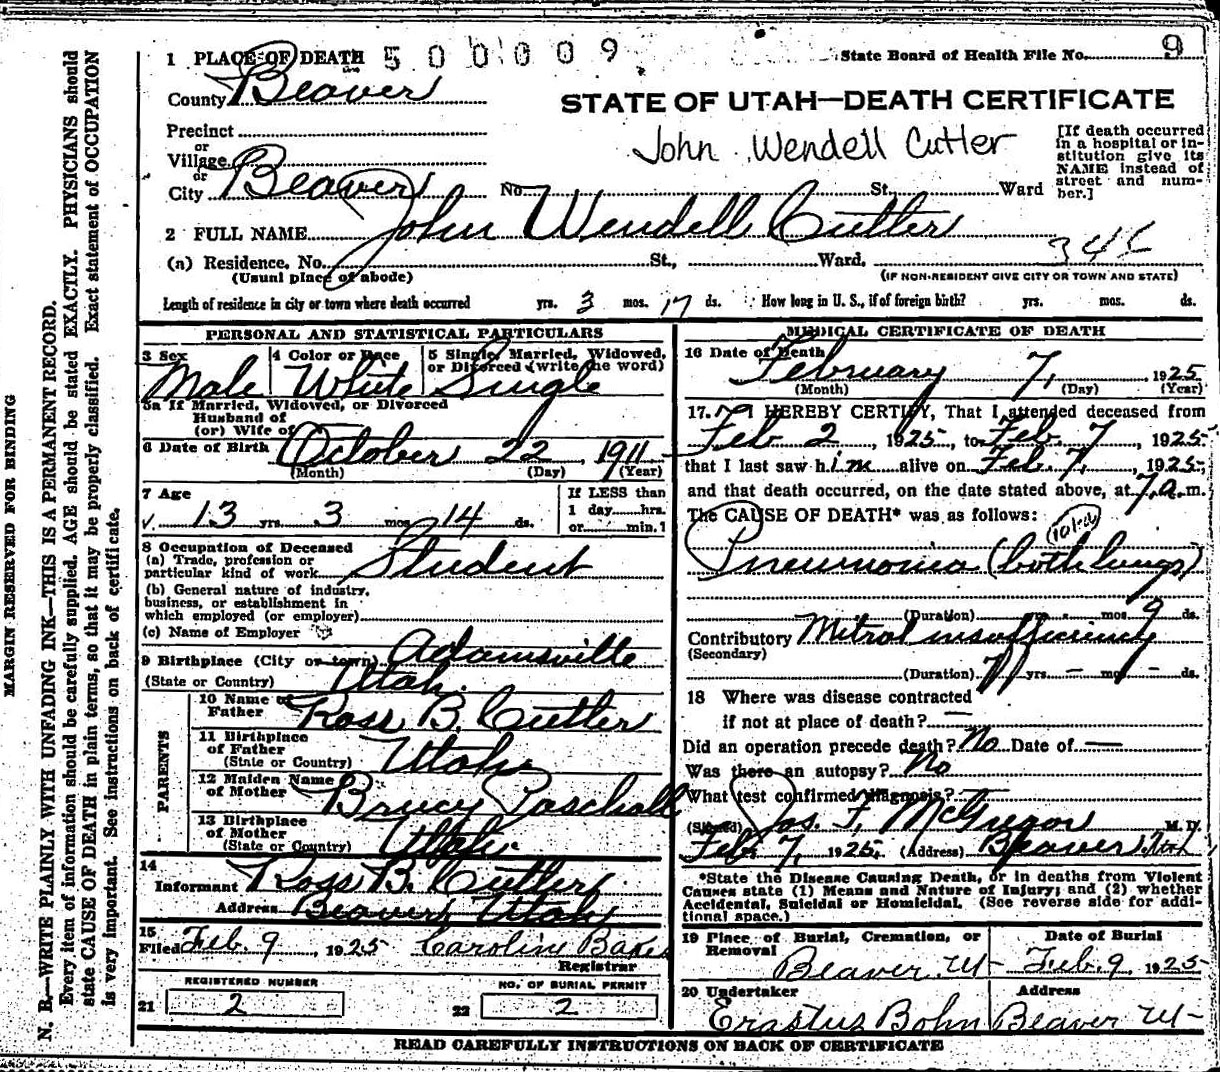 1 PLACE OF DEATH 500009 State Board of Health File No. 9
County Beaver
STATE OF UTAH—DEATH CERTIFICATE
Precinct
or
Village
or
City Beaver No. St. Ward
John Wendell Cutler
[If death occurred in a hospital or institution give its NAME instead of street and number.]
2 FULL NAME John Wendell Cutler
(a) Residence, No. St., Ward.
(Usual place of abode) (IF NON-RESIDENT GIVE CITY OR TOWN AND STATE)
Length of residence in city or town where death occurred yrs. 3 mos. 17 ds. How long in U. S., if of foreign birth? yrs. mos. ds.
PERSONAL AND STATISTICAL PARTICULARS
3 Sex 4 Color or Race 5 Single, Married, Widowed, or Divorced (write the word)
Male White Single
5a If Married, Widowed, or Divorced
Husband of
(or) Wife of
6 Date of Birth October 22, 1911
(Month) (Day) (Year)
7 Age If LESS than
1 day hrs.
or min.?
13 yrs. 3 mos. 14 ds.
8 Occupation of Deceased
(a) Trade, profession or
particular kind of work Student
(b) General nature of industry,
business, or establishment in
which employed (or employer)
(c) Name of Employer
9 Birthplace (City or town) Adamsville
(State or Country) Utah.
PARENTS
10 Name of
Father Ross B. Cutler
11 Birthplace
of Father
(State or Country) Utah
12 Maiden Name
of Mother Brucy Paschall
13 Birthplace
of Mother
(State or Country) Utah.
14
Informant Ross B. Cutler
Address Beaver, Utah
15
Filed Feb. 9, 1925 Caroline Baker
Registrar
REGISTERED NUMBER NO. OF BURIAL PERMIT
21 2 22 2
MEDICAL CERTIFICATE OF DEATH
16 Date of Death
February 7, 1925
(Month) (Day) (Year)
17. I HEREBY CERTIFY, That I attended deceased from
Feb 2, 1925, to Feb. 7, 1925
that I last saw him alive on Feb. 7, 1925,
and that death occurred, on the date stated above, at 7 a.m.
The CAUSE OF DEATH* was as follows:
Pneumonia (both lungs)
(Duration) yrs. - mos. 9 ds.
Contributory Mitral insufficiency
(Secondary)
(Duration) yrs. - mos. - ds.
18 Where was disease contracted
if not at place of death? —
Did an operation precede death? No Date of —
Was there an autopsy? No
What test confirmed diagnosis?
(Signed) Jos. F. McGregor M. D.
Feb 7, 1925, (Address) Beaver, Utah
*State the Disease Causing Death, or in deaths from Violent
Causes state (1) Means and Nature of Injury; and (2) whether
Accidental, Suicidal or Homicidal. (See reverse side for additional space.)
19 Place of Burial, Cremation, or Removal Date of Burial
Beaver Ut- Feb. 9, 1925
20 Undertaker Address
Erastus Bohn Beaver Ut-
READ CAREFULLY INSTRUCTIONS ON BACK OF CERTIFICATE
MARGIN RESERVED FOR BINDING
N. B.—WRITE PLAINLY WITH UNFADING INK—THIS IS A PERMANENT RECORD.
Every item of information should be carefully supplied. AGE should be stated EXACTLY. PHYSICIANS should
state CAUSE OF DEATH in plain terms, so that it may be properly classified. Exact statement of OCCUPATION
is very important. See instructions on back of certificate.